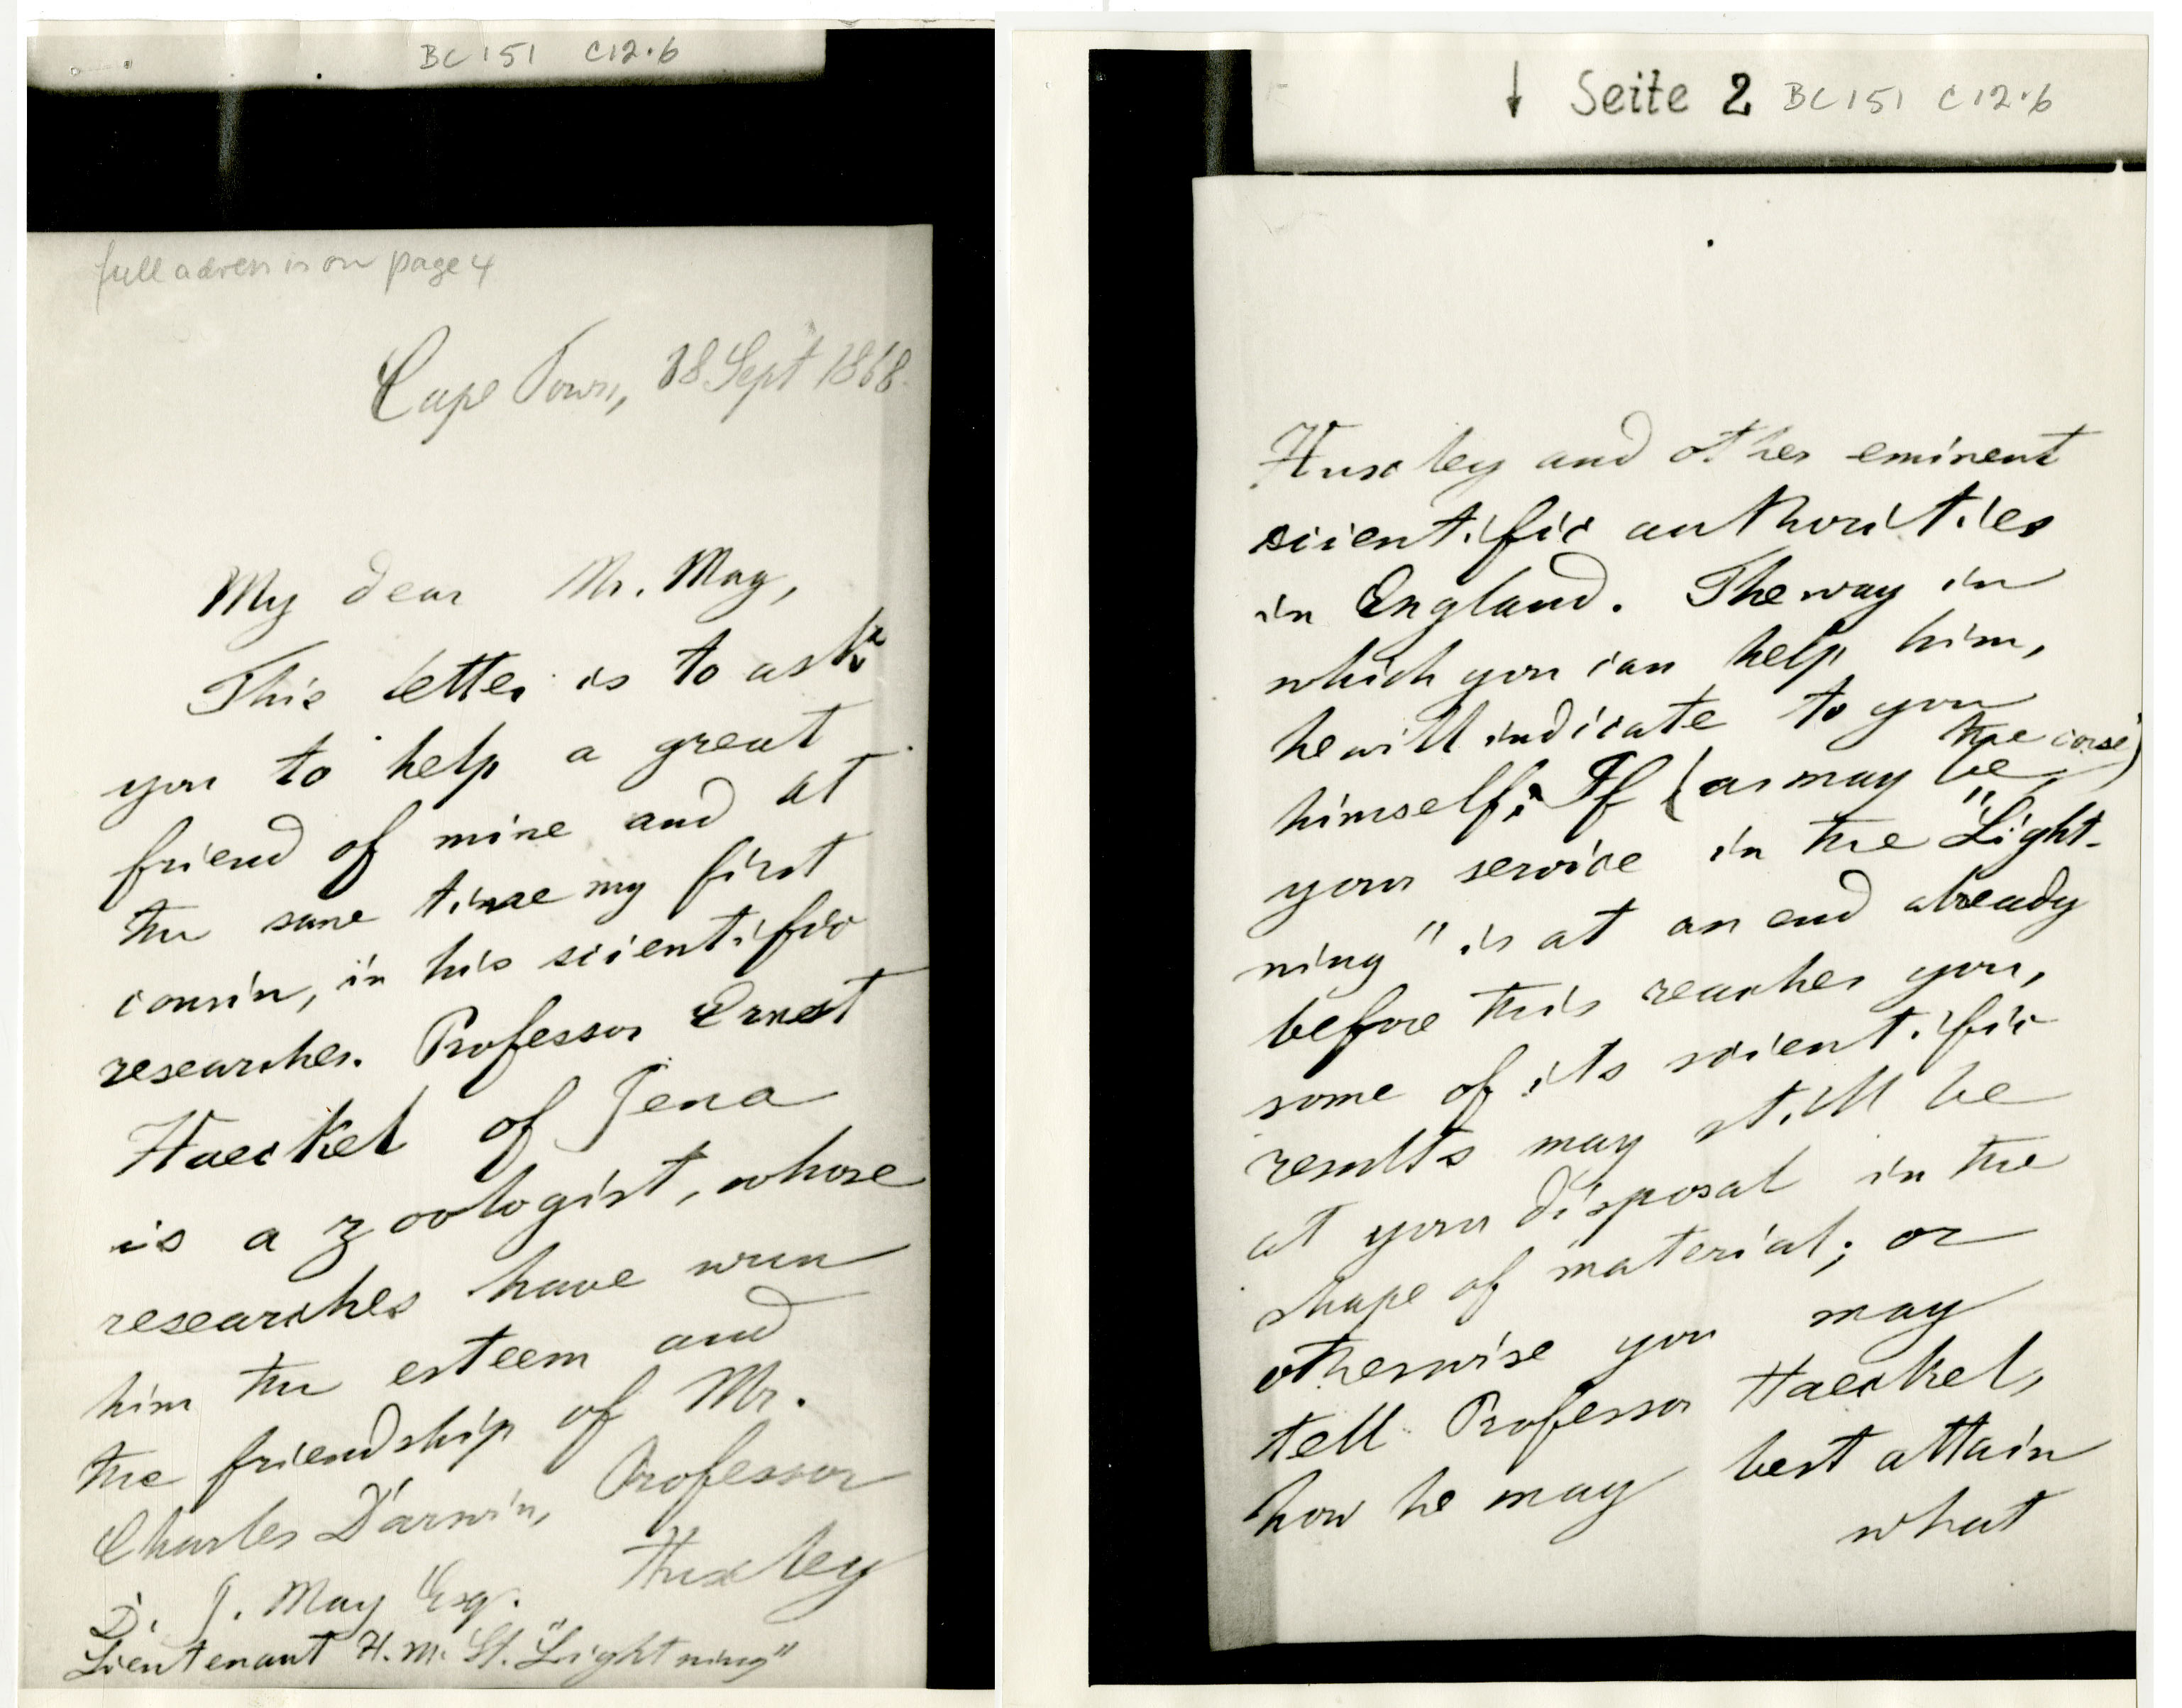 BC 151 C12.6
full adress is on page 4
Cape Town, 18 Sept 1868.
My dear Mr. May,
This letter is to ask
you to help a great
friend of mine and at
the same time my first
cousin, in his scientific
researches. Professor Ernest
Haeckel of Jena
is a zoologist, whose
researches have won
him the esteem and
the friendship of Mr.
Charles Darwin, Professor
Huxley
D. J. May Esq.
Lieutenant H. M. St. "Lightning"
↓ Seite 2 BC 151 C12.6
Huxley and other eminent
scientific authorities
in England. The way in
which you can help him,
he will indicate to you
himself. If (as may be the case)
your service in the "Light-
ning" is at an end already
before this reaches you,
some of its scientific
results may still be
at your disposal in the
shape of material; or
otherwise you may
tell Professor Haeckel,
how he may best attain
what